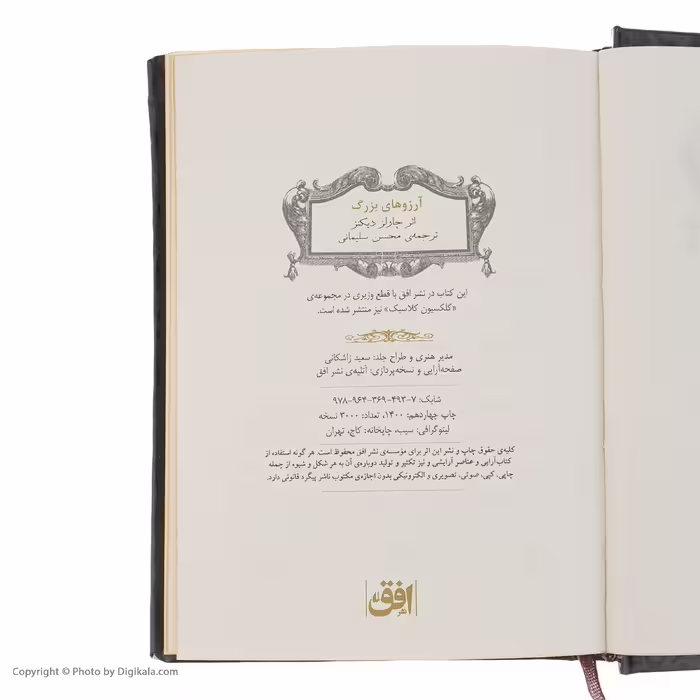 آرزوهای بزرگ
اثر چارلز دیکنز
ترجمه‌ی محسن سلیمانی
این کتاب در نشر افق با قطع وزیری در مجموعه‌ی
«کلکسیون کلاسیک» نیز منتشر شده است.
مدیر هنری و طراح جلد: سعید زاشکانی
صفحه‌آرایی و نسخه‌پردازی: آتلیه‌ی نشر افق
شابک: ۷-۴۹۳-۳۶۹-۹۶۴-۹۷۸
چاپ چهاردهم: ۱۴۰۰، تعداد: ۳۰۰۰ نسخه
لیتوگرافی: سیب، چاپخانه: کاج، تهران
کلیه‌ی حقوق چاپ و نشر این اثر برای مؤسسه‌ی نشر افق محفوظ است. هر گونه استفاده از
کتاب‌آرایی و عناصر آرایشی و نیز تکثیر و تولید دوباره‌ی آن به هر شکل و شیوه از جمله
چاپی، کپی، صوتی، تصویری و الکترونیکی بدون اجازه‌ی مکتوب ناشر پیگرد قانونی دارد.
نشر افق
Copyright © Photo by Digikala.com